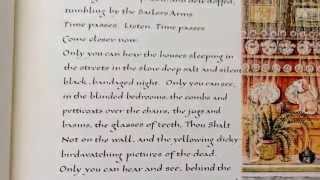 tumbling by the Sailors Arms.
Time passes. Listen. Time passes.
Come closer now.
Only you can hear the houses sleeping in
the streets in the slow deep salt and silent
black, bandaged night. Only you can see,
in the blinded bedrooms, the combs and
petticoats over the chairs, the jugs and
basins, the glasses of teeth, Thou Shalt
Not on the wall, and the yellowing dicky
birdwatching pictures of the dead.
Only you can hear and see, behind the